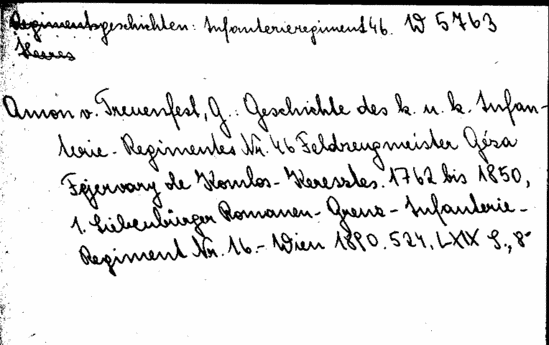 Regimentsgeschichten: Infanterieregiment 46. W 5763
Heeres
Amon v. Treuenfest, G.: Geschichte des k. u. k. Infan-
terie-Regimentes Nr. 46 Feldzeugmeister Géza
Fejervary de Komlos-Keresztes. 1762 bis 1850,
1. Siebenbürger Romanen-Grenz-Infanterie-
Regiment Nr. 16.- Wien 1890. 524, LXIX S., 8°